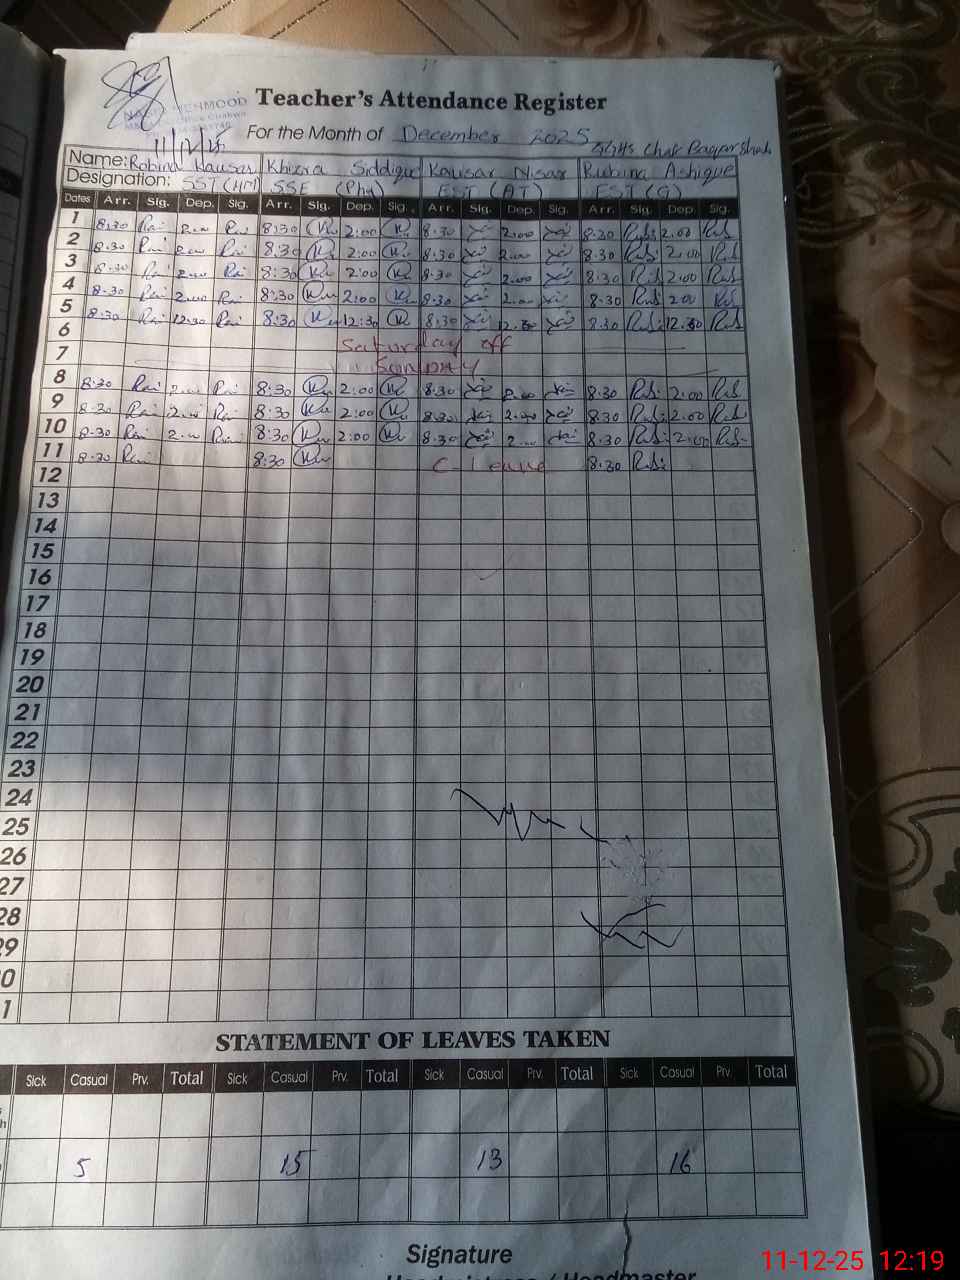 MEHMOOD
Teacher's Attendance Register
11/12/25
For the Month of December 2025
GGHS Chak Baqar Shah
Name: Robina Kausar Khizra Siddique Kausar Nisar Rubina Ashique
Designation: SST (HM) SSE (Phy) EST (AT) EST (G)
Dates Arr. Sig. Dep. Sig. Arr. Sig. Dep. Sig. Arr. Sig. Dep. Sig. Arr. Sig. Dep. Sig.
1 8:30 2.00 8:30 2:00 8.30 2.00 8.30 2.00
2 8.30 2.00 8:30 2:00 8:30 2.00 8.30 2.00
3 8.30 2.00 8:30 2:00 8.30 2.00 8:30 2.00
4 8.30 2.00 8:30 2:00 8.30 2.00 8.30 2.00
5 8:30 12.30 8:30 12:30 8:30 12.30 8.30 12.30
6 Saturday off
7 SUNDAY
8 8:30 2.00 8:30 2:00 8.30 2.00 8:30 2.00
9 8.30 2.00 8:30 2:00 8.30 2.00 8.30 2.00
10 8.30 2.00 8:30 2:00 8.30 2.00 8:30 2.00
11 8.30 8:30 C-leave 8.30
12
13
14
15
16
17
18
19
20
21
22
23
24
25
26
27
28
29
0
1
STATEMENT OF LEAVES TAKEN
Sick Casual Prv. Total Sick Casual Prv. Total Sick Casual Prv. Total Sick Casual Prv. Total
5 15 13 16
Signature
Headmistress / Headmaster
11-12-25 12:19